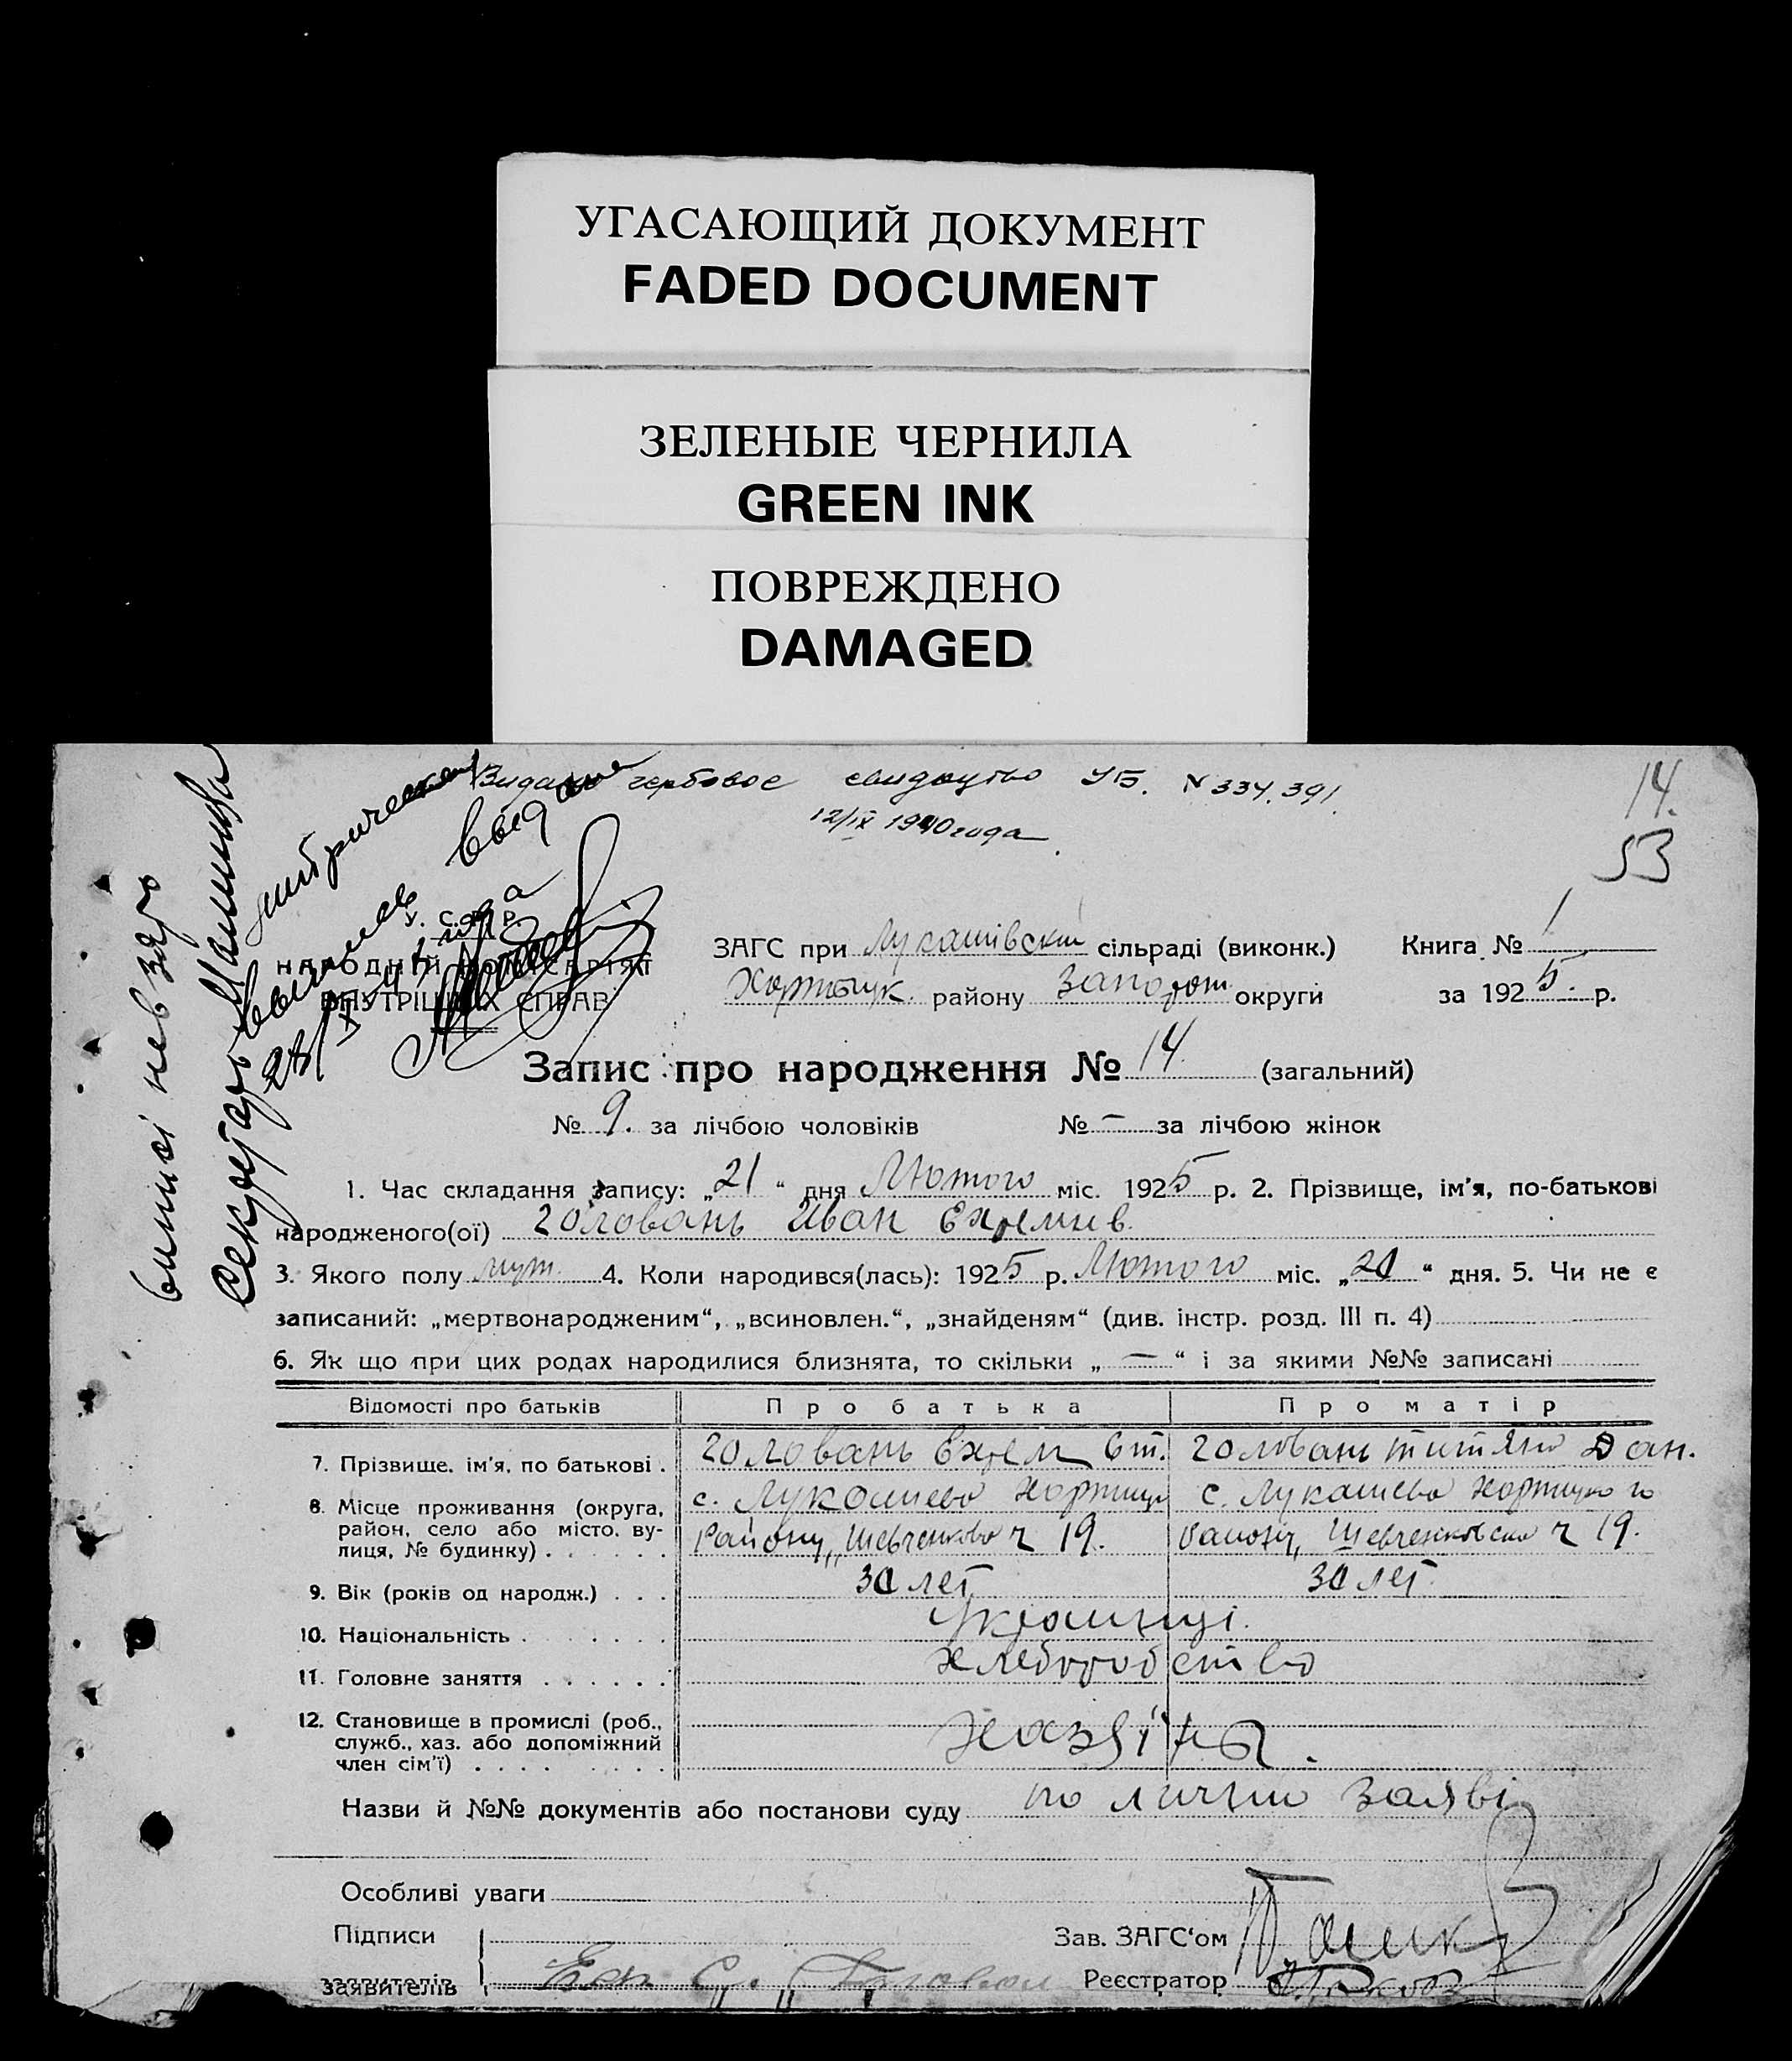 УГАСАЮЩИЙ ДОКУМЕНТ
FADED DOCUMENT
ЗЕЛЕНЫЕ ЧЕРНИЛА
GREEN INK
ПОВРЕЖДЕНО
DAMAGED
Видано гербовое свидоцтво УБ. № 334.391.
12/IX 1940 года.
14.
53
У. С. Р. Р.
НАРОДНІЙ КОМІСАРІЯТ
ВНУТРІШНІХ СПРАВ
ЗАГС при Лукашівскій сільраді (виконк.) Книга № 1
Хортыцк. району Запорош округи за 1925. р.
Запис про народження № 14 (загальний)
№ 9. за лічбою чоловіків № – за лічбою жінок
1. Час складання запису: „21“ дня Лютого міс. 1925 р. 2. Прізвище, ім'я, по-батькові
народженого(ої) Головань Иван Ехремив.
3. Якого полу муж. 4. Коли народився(лась): 1925 р. Лютого міс. „20“ дня. 5. Чи не є
записаний: „мертвонародженим“, „всиновлен.“, „знайденям“ (див. інстр. розд. III п. 4)
6. Як що при цих родах народилися близнята, то скільки „ – “ і за якими №№ записані
Відомості про батьків Про батька Про матір
7. Прізвище, ім'я, по батькові . Головань Ехрем Ст. Головань Титяна Дан.
8. Місце проживання (округа, район, село або місто, вулиця, № будинку) . . . . . .
с. Лукашево Хортицк с. Лукашево Хортицкого
Району, Шевченково ч 19. Району, Шевченковска ч 19.
9. Вік (років од народж.) . . . 30 лет 30 лет.
10. Національність . . . . . . . Украинці.
11. Головне заняття . . . . . . хлеборобство
12. Становище в промислі (роб., служб., хаз. або допоміжний член сім'ї) . . . . . . . . Хазяіны.
Назви й №№ документів або постанови суду по лично заяві
Особливі уваги
Підписи
заявителів
Зав. ЗАГС'ом
Реєстратор